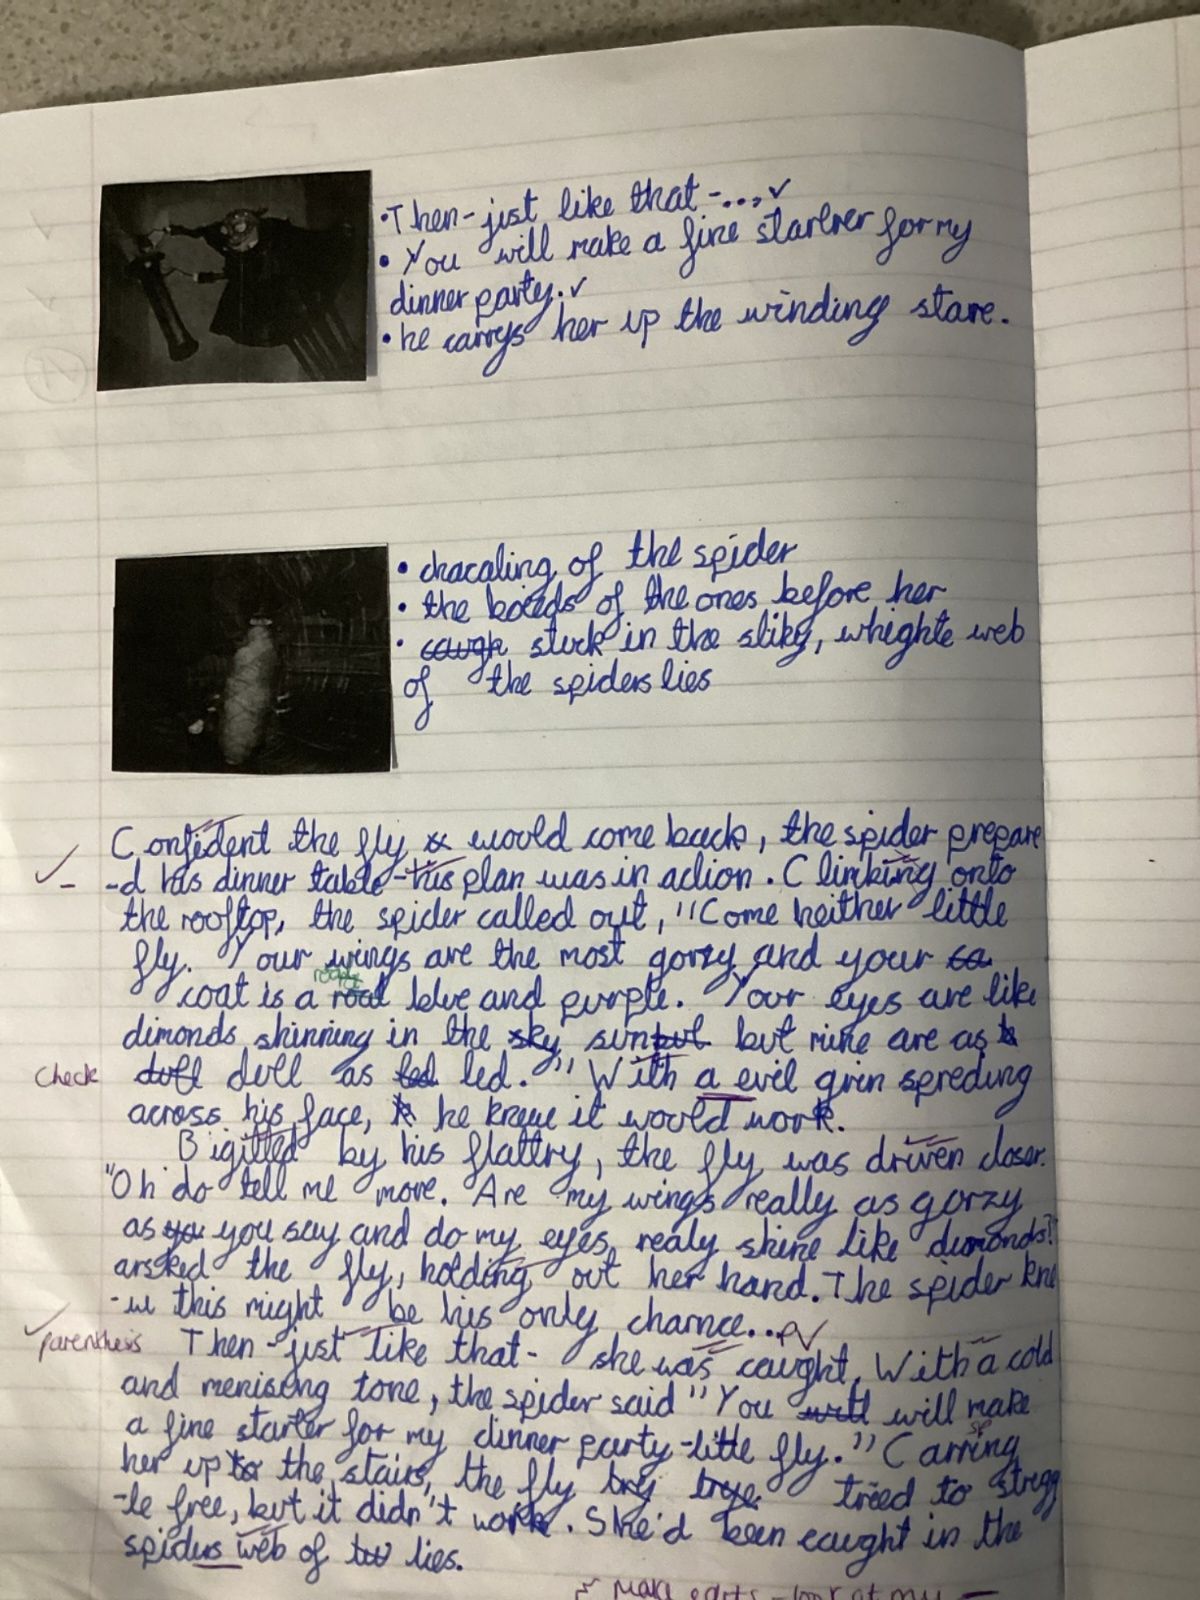 •Then-just like that-...,✓
• You will make a fine starter for my
dinner party.✓
• he carrys her up the winding stare.
• chacaling of the spider
• the boieds of the ones before her
• caugh stuck in the sliky, whighte web
of the spiders lies
Confident the fly would come back, the spider prepare
-d his dinner table-his plan was in action. Climbing onto
the rooftop, the spider called out, "Come heither little
fly. Your wings are the most gorzy and your ca
coat is a roal blue and purple. Your eyes are like
dimonds shinning in the sky sun but but mine are as
check dull dull as led led." With a evil grin spreding
across his face, he knew it would work.
Bigitted by his flattry, the fly was driven closer.
"Oh do tell me more. Are my wings really as gorzy
as you you say and do my eyes realy shine like dimonds?"
arsked the fly, holding out her hand. The spider kne
-w this might be his only chamce...✓
✓ parenthesis Then-just like that- she was caught. With a cold
and menising tone, the spider said "You will will make
sp
a fine starter for my dinner party-little fly." Carring
her up to the stairs, the fly try trye tried to strugg
-le free, but it didn't work. She'd been caught in the
spiders web of lies.
make edits - look at my